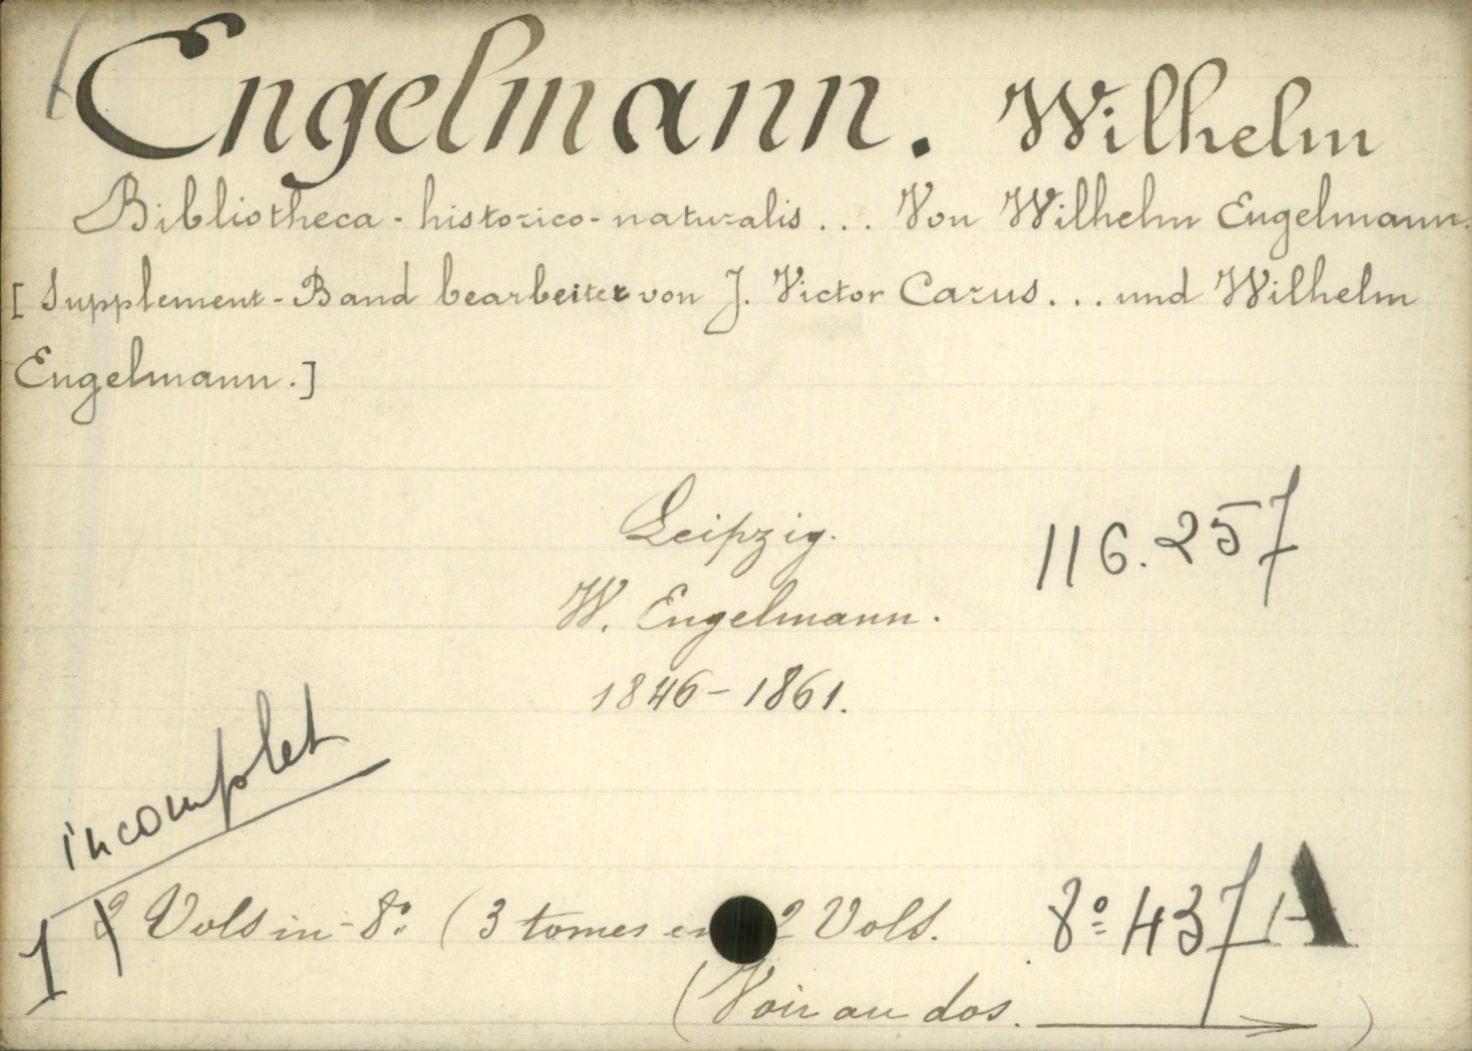 Engelmann. Wilhelm
Bibliotheca-historico-naturalis... Von Wilhelm Engelmann.
[Supplement-Band bearbeitet von J. Victor Carus... und Wilhelm
Engelmann.]
Leipzig.
116.257
W. Engelmann.
1846-1861.
incomplet
1 2 Vols in-8º (3 tomes en 2 Vols.
8º 437 A
(Voir au dos. )